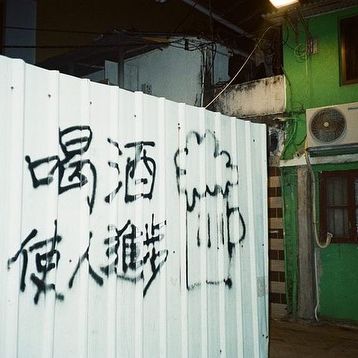 喝酒
使人進步